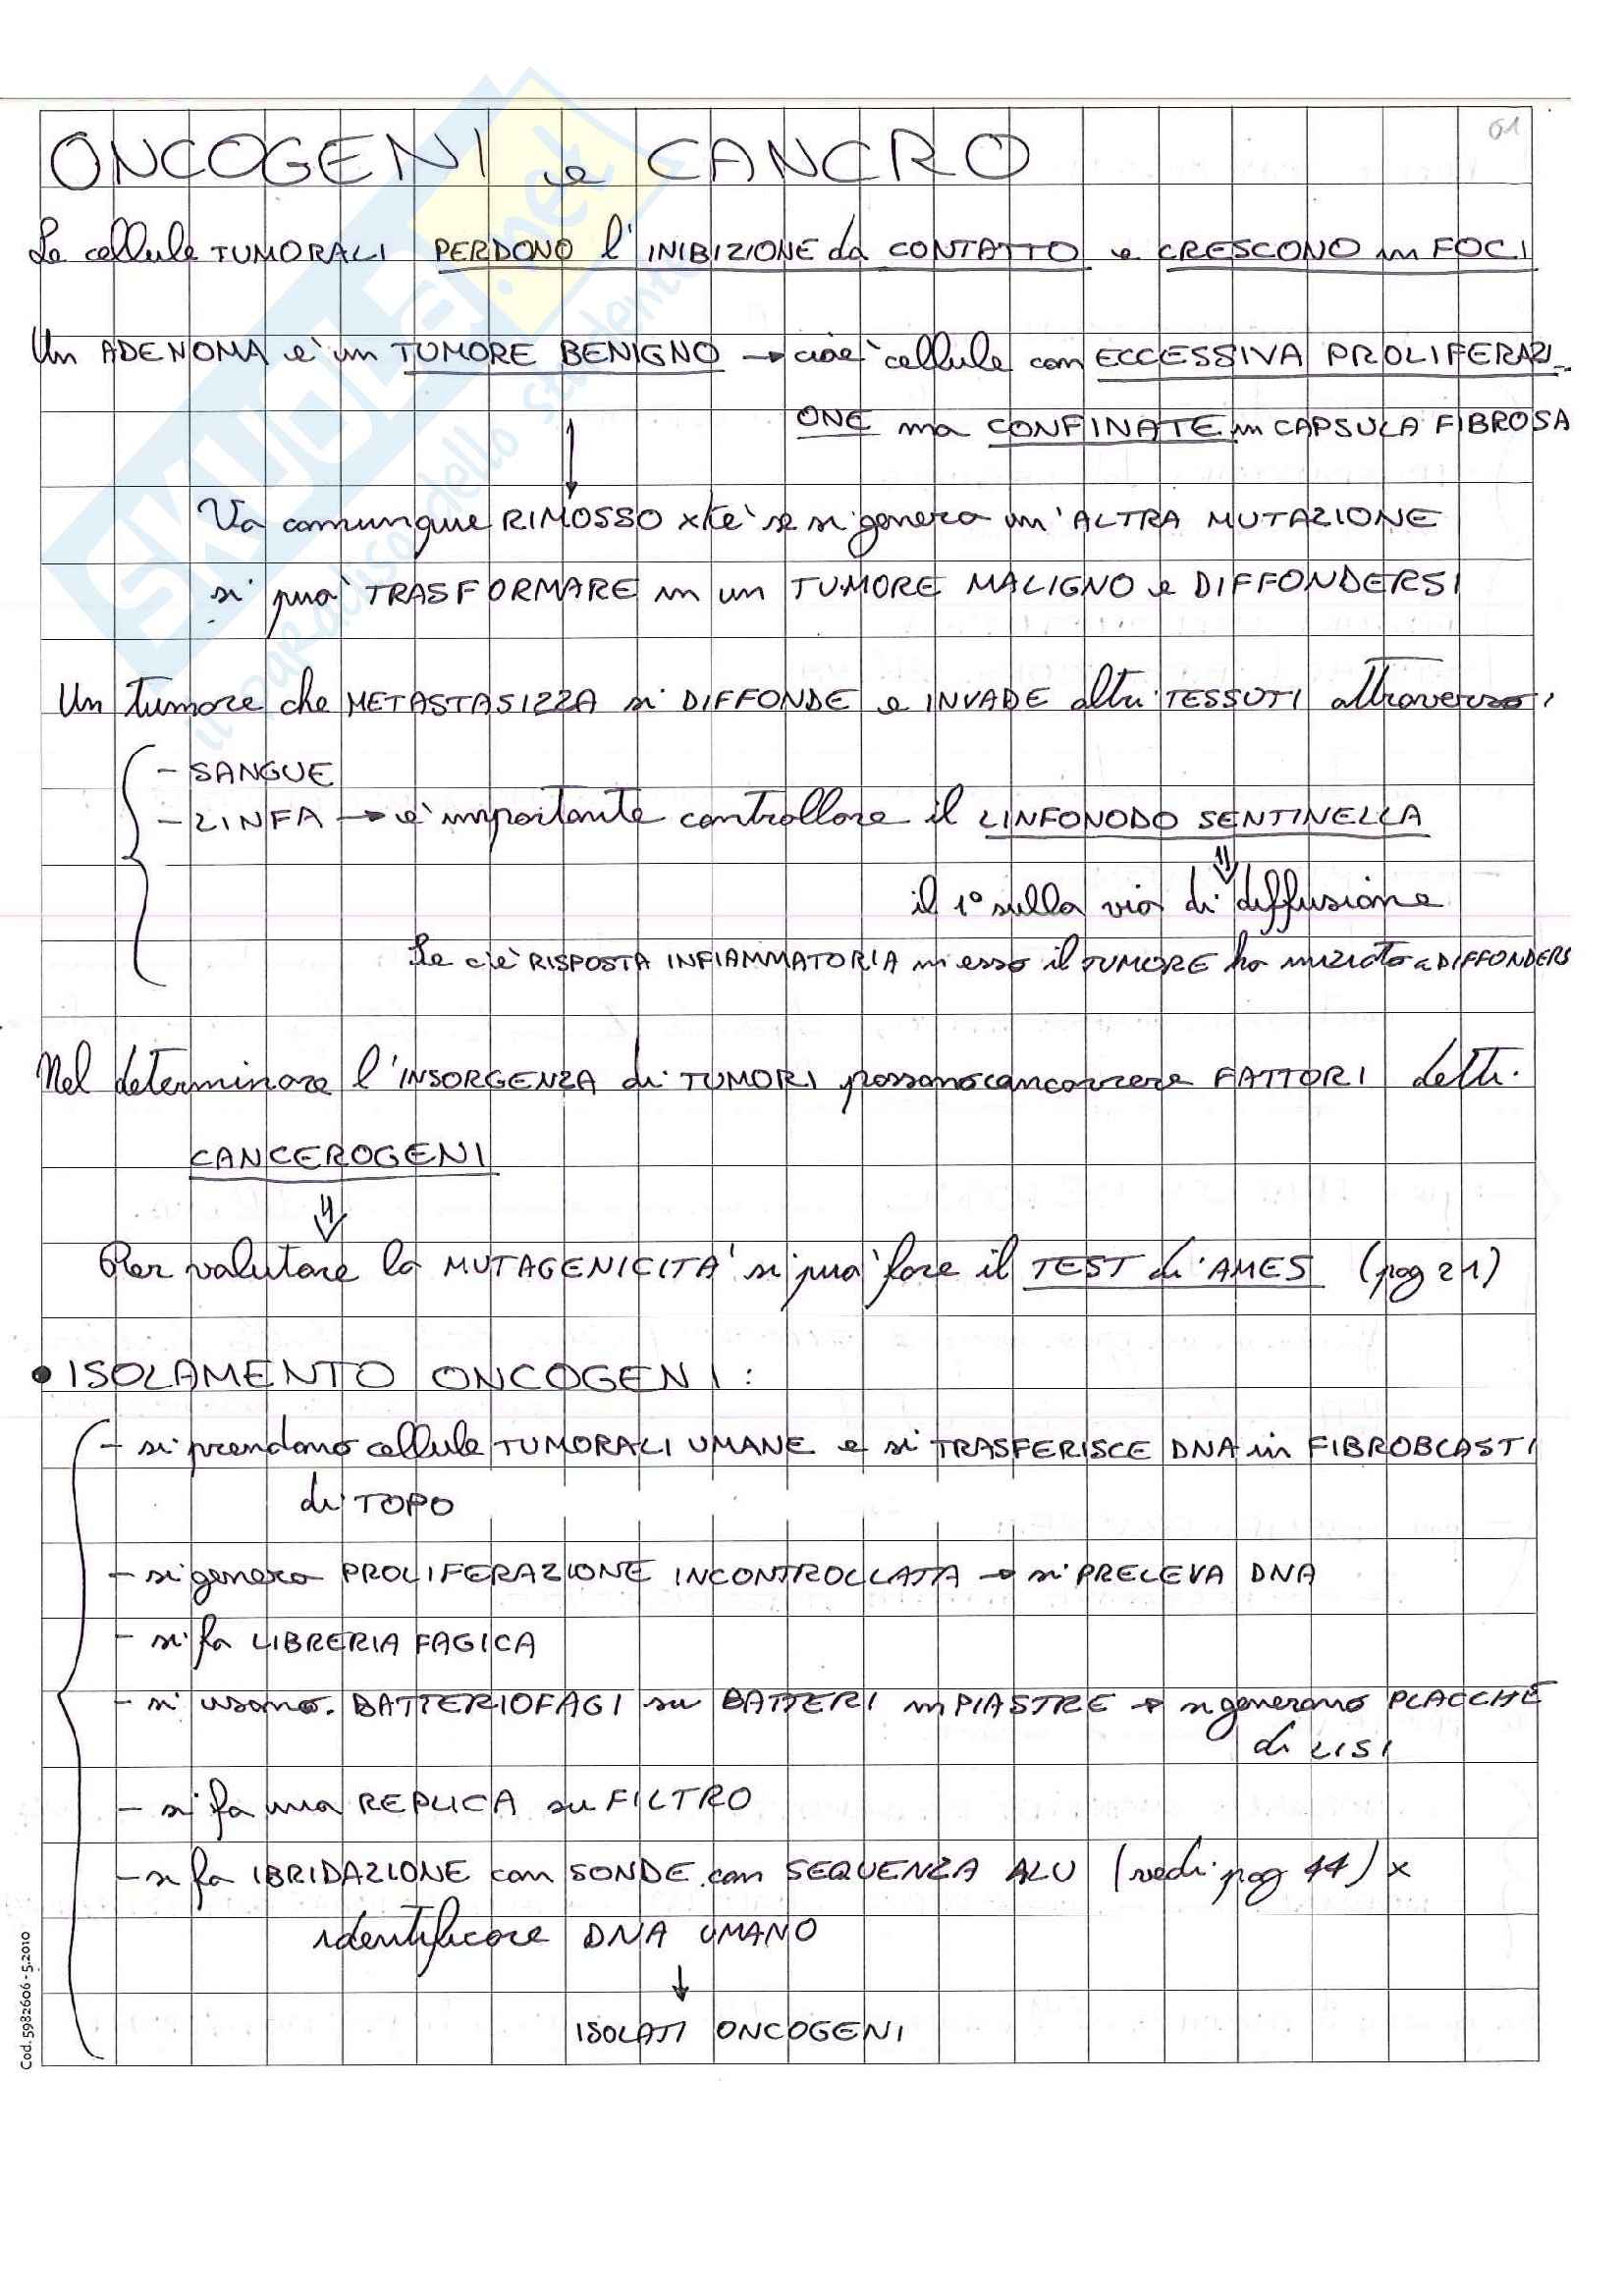 61
ONCOGENI e CANCRO
Le cellule TUMORALI PERDONO l'INIBIZIONE da CONTATTO e CRESCONO in FOCI
Un ADENOMA e' un TUMORE BENIGNO → cioe' cellule con ECCESSIVA PROLIFERAZI-
ONE ma CONFINATE in CAPSULA FIBROSA
Va comunque RIMOSSO xke' se si genera un'ALTRA MUTAZIONE
si puo' TRASFORMARE in un TUMORE MALIGNO e DIFFONDERSI
Un tumore che METASTASIZZA si DIFFONDE e INVADE altri TESSUTI attraverso:
- SANGUE
- LINFA → e' importante controllare il LINFONODO SENTINELLA
il 1° sulla via di diffusione
Se c'e' RISPOSTA INFIAMMATORIA in esso il TUMORE ha iniziato a DIFFONDERS
Nel determinare l'INSORGENZA di TUMORI possono concorrere FATTORI detti
CANCEROGENI
Per valutare la MUTAGENICITA' si puo' fare il TEST di AMES (pag 21)
• ISOLAMENTO ONCOGENI:
- si prendono cellule TUMORALI UMANE e si TRASFERISCE DNA in FIBROBLASTI
di TOPO
- si genera PROLIFERAZIONE INCONTROLLATA → si PRELEVA DNA
- si fa LIBRERIA FAGICA
- si usano BATTERIOFAGI su BATTERI in PIASTRE → si generano PLACCHE
di LISI
- si fa una REPLICA su FILTRO
- si fa IBRIDAZIONE con SONDE con SEQUENZA ALU (vedi pag 44) x
identificare DNA UMANO
↓
ISOLATI ONCOGENI
Cod. 5982606 - 5.2010
SKUOLA.net
il paradiso dello studente